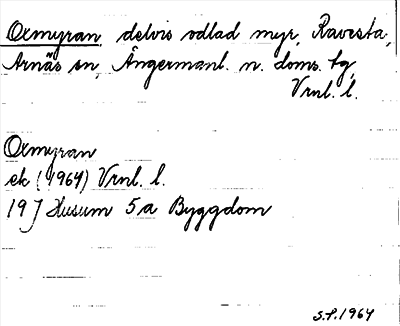 Oxmyran, delvis odlad myr, Ravesta,
Arnäs sn, Ångermanl. n. doms. tg,
Vrnl. l.
Oxmyran
ek (1964) Vrnl. l.
19 J Husum 5a Byggdom
S.P. 1964